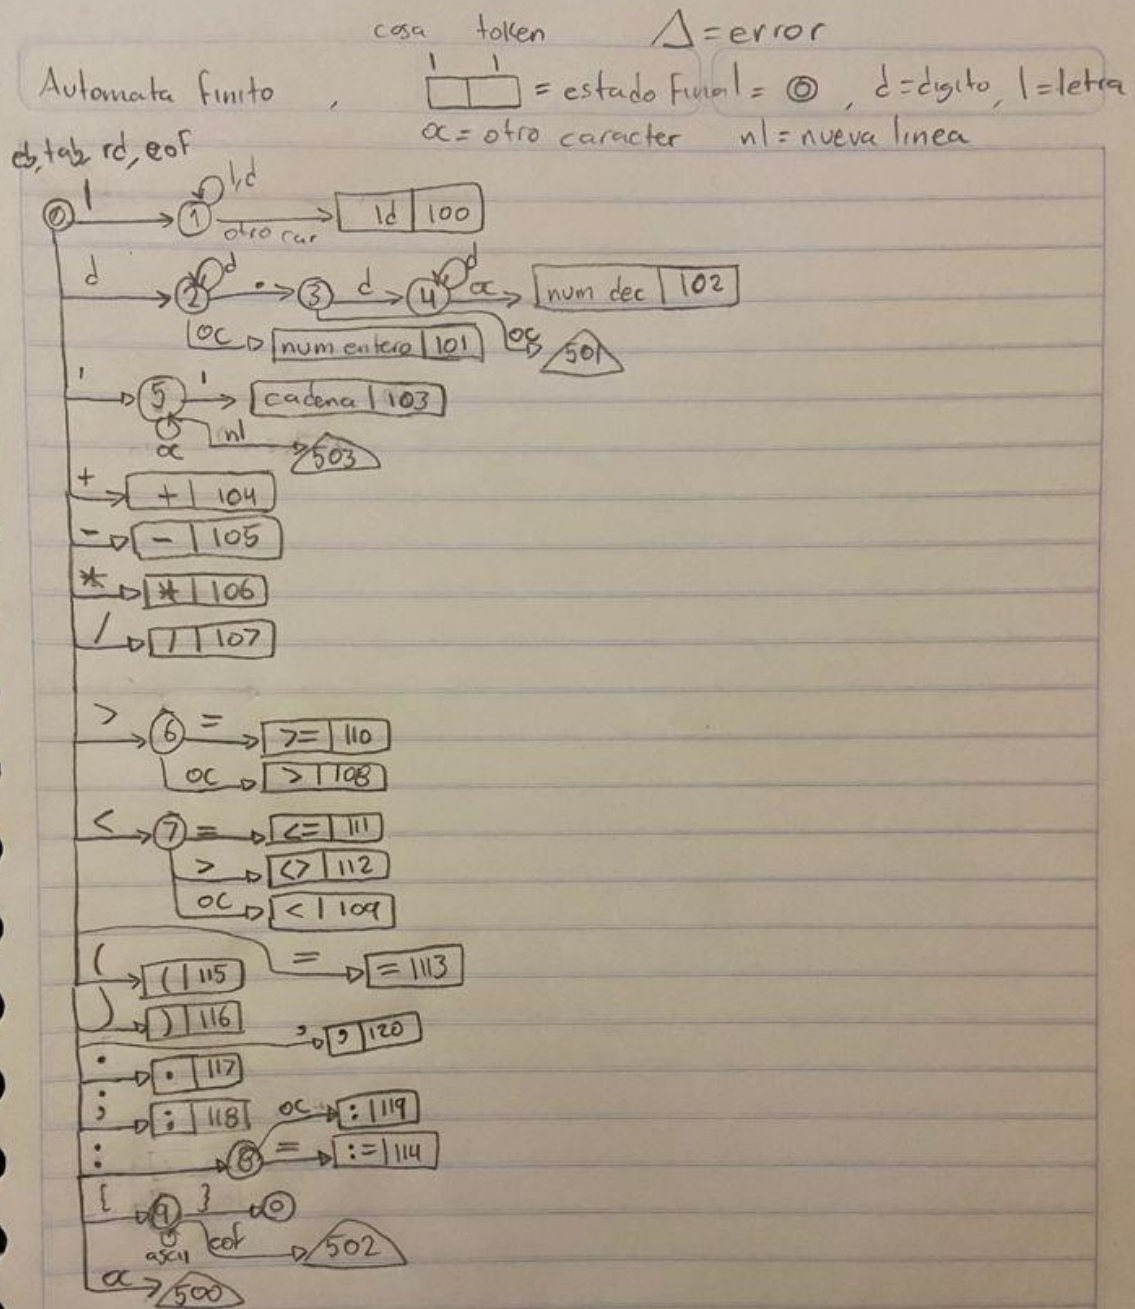 cosa token Δ=error
Automata finito , = estado Final = ⓪ , d=digito, l=letra
oc = otro caracter nl=nueva linea
eb, tab, rd, eof
0 l 1 l,d otro car Id 100
d 2 d . 3 d 4 d oc num dec 102
oc num entero 101 oc 501
' 5 ' cadena 103
oc nl 503
+ + 104
- - 105
* * 106
/ / 107
> 6 = >= 110
oc > 108
< 7 = <= 111
> <> 112
oc < 109
( ( 115 = = 113
) ) 116
, , 120
. . 117
; ; 118 oc : 119
: 8 = := 114
{ 9 } 0
ascii eof 502
oc 500